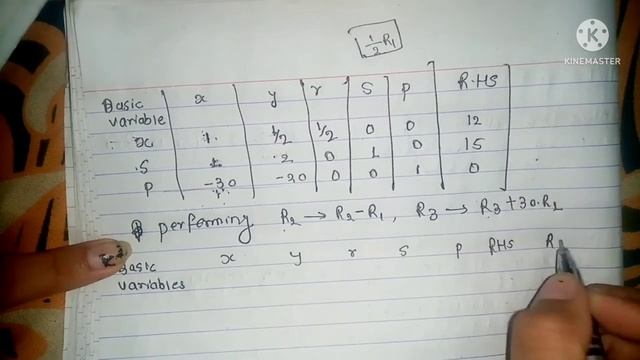 1/2 R1
KINEMASTER
Basic variable x y r S P R.HS
x 1. 1/2 1/2 0 0 12
S 1 2 0 1 0 15
P -30 -20 0 0 1 0
performing R2 → R2-R1, R3 → R3+30.R1
Basic variables x y r S P RHS R